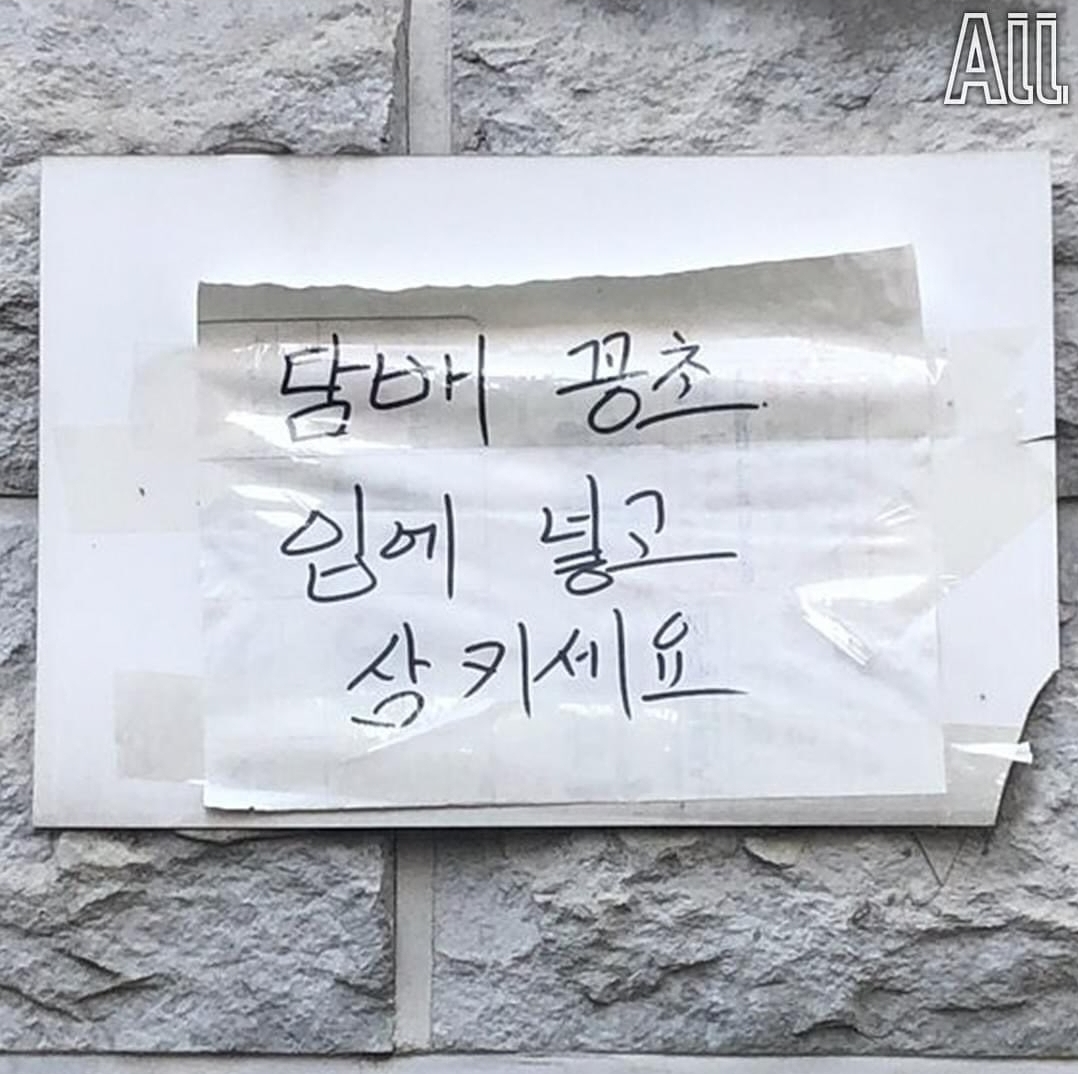 All
담배 꽁초
입에 넣고
상키세요